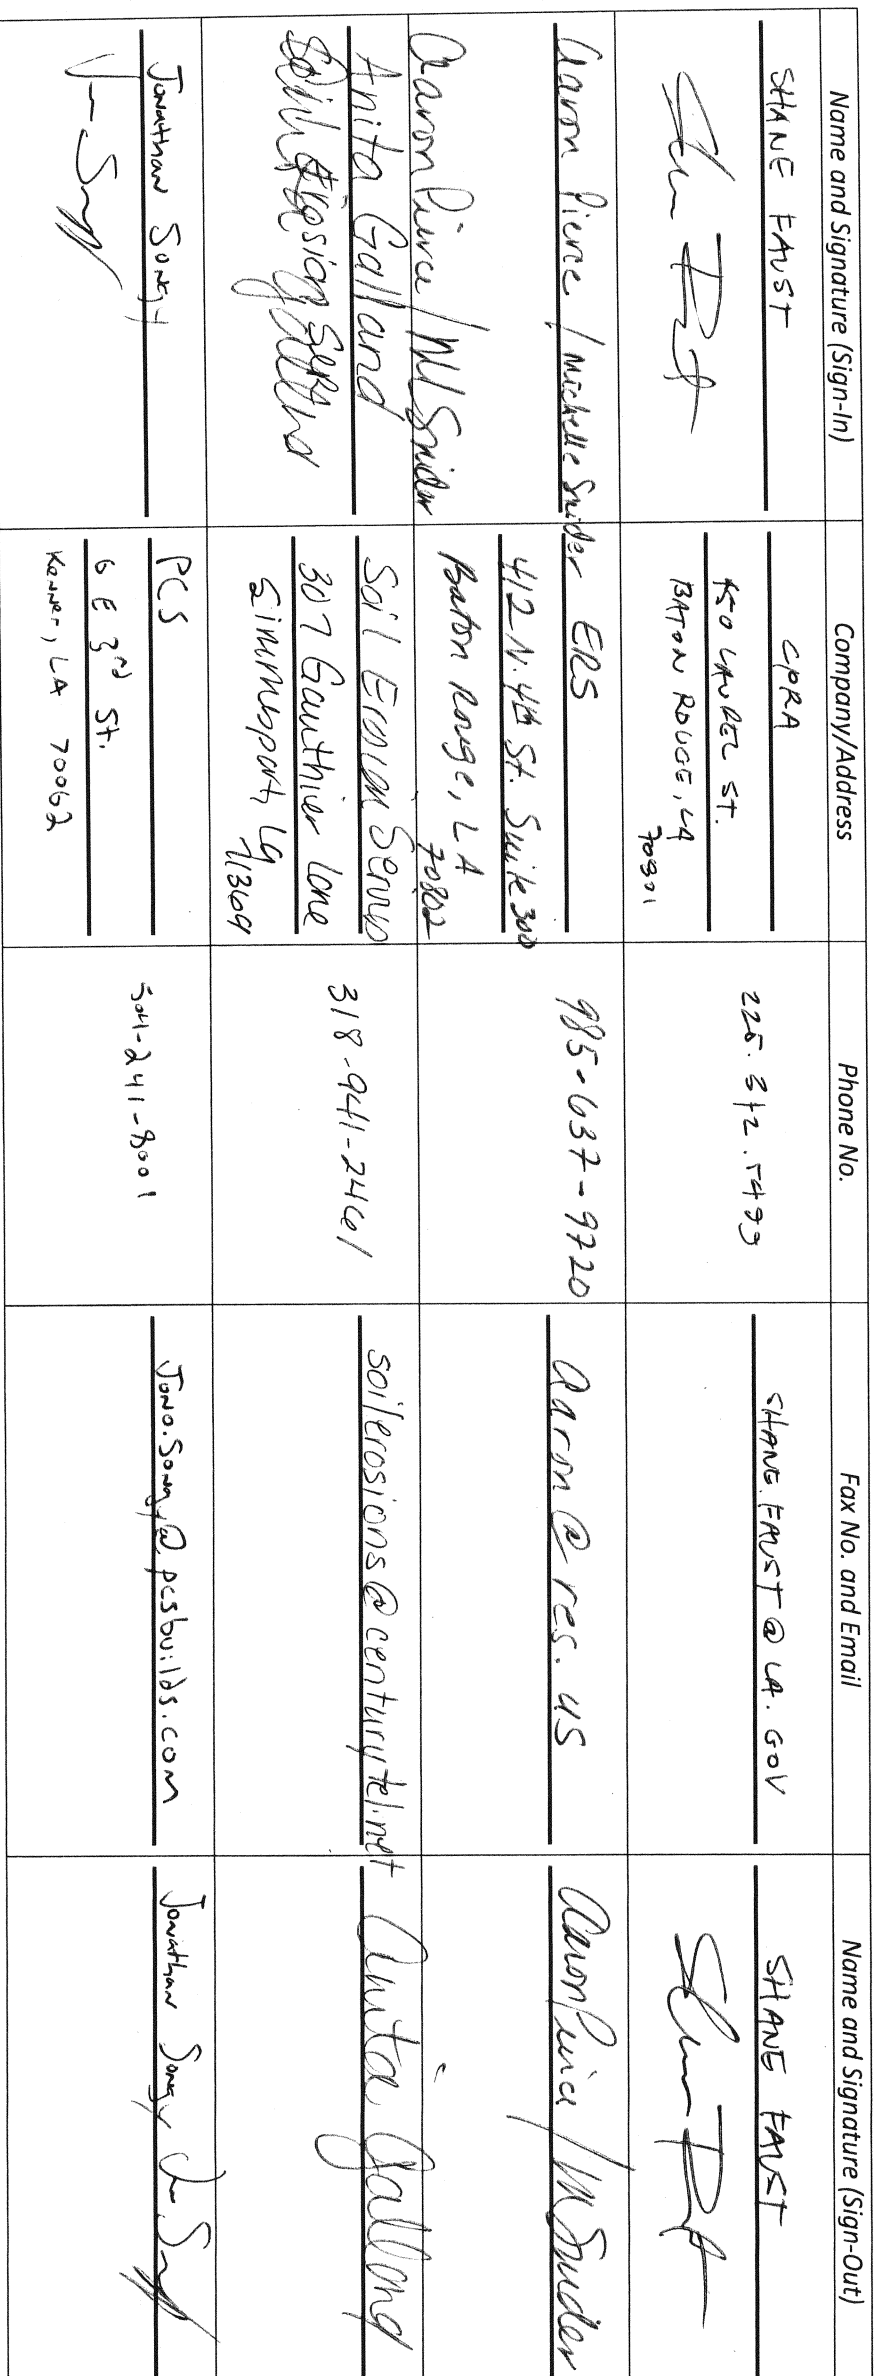 Name and Signature (Sign-In) Company/Address Phone No. Fax No. and Email Name and Signature (Sign-Out)
SHANE FAUST
CPRA
450 LAUREL ST.
BATON ROUGE, LA
70801
225.342.5499
SHANE.FAUST@LA.GOV
SHANE FAUST
Aaron Pierce / Michelle Snider
Aaron Pierce / M Snider
ERS
412 N. 4th St. Suite 300
Baton Rouge, LA
70802
985-637-9720
aaron@res.us
Aaron Pierce / M Snider
Anita Galland
Soil Erosion Serv
Soil Erosion Service
307 Gauthier Lane
Simmesport, La
71369
318-941-2461
soilerosions@centurytel.net
Anita Galland
Jonathan Songy
PCS
6 E 3rd St.
Kenner, LA 70062
504-241-8001
Jono.Songy@pcsbuilds.com
Jonathan Songy